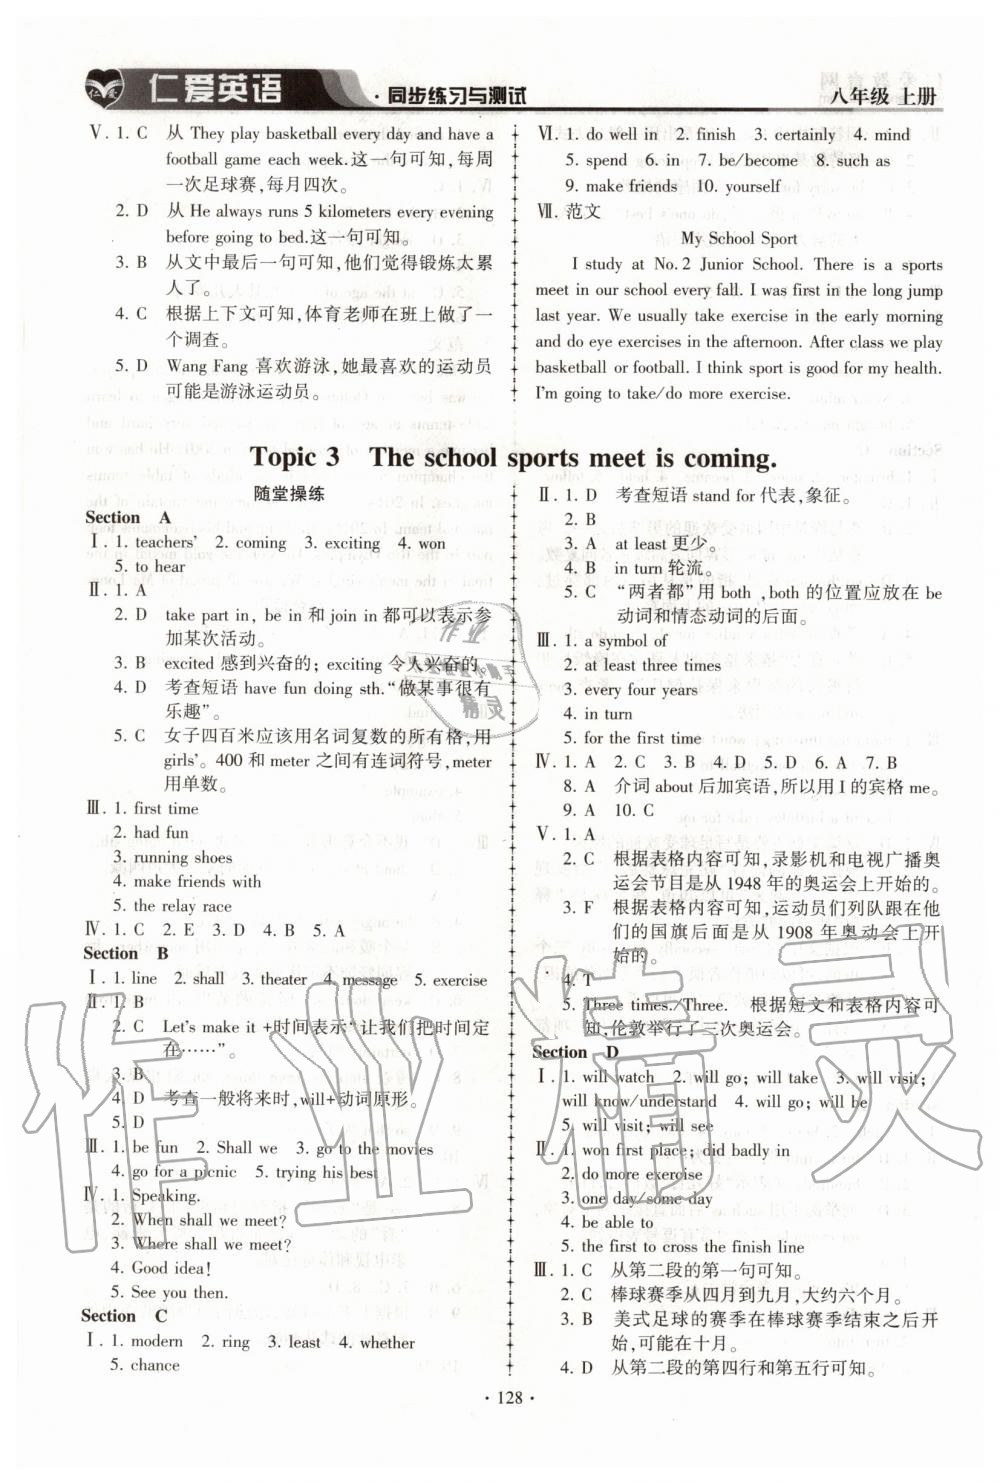 仁爱英语
·同步练习与测试
八年级 上册
Ⅴ. 1. C 从 They play basketball every day and have a
football game each week.这一句可知,每周
一次足球赛,每月四次。
2. D 从 He always runs 5 kilometers every evening
before going to bed.这一句可知。
3. B 从文中最后一句可知,他们觉得锻炼太累
人了。
4. C 根据上下文可知,体育老师在班上做了一
个调查。
5. D Wang Fang 喜欢游泳,她最喜欢的运动员
可能是游泳运动员。
Ⅵ. 1. do well in 2. finish 3. certainly 4. mind
5. spend 6. in 7. be/become 8. such as
9. make friends 10. yourself
Ⅶ. 范文
My School Sport
I study at No. 2 Junior School. There is a sports
meet in our school every fall. I was first in the long jump
last year. We usually take exercise in the early morning
and do eye exercises in the afternoon. After class we play
basketball or football. I think sport is good for my health.
I'm going to take/do more exercise.
Topic 3 The school sports meet is coming.
随堂操练
Section A
Ⅰ. 1. teachers' 2. coming 3. exciting 4. won
5. to hear
Ⅱ. 1. A
2. D take part in, be in 和 join in 都可以表示参
加某次活动。
3. B excited 感到兴奋的; exciting 令人兴奋的。
4. D 考查短语 have fun doing sth.“做某事很有
乐趣”。
5. C 女子四百米应该用名词复数的所有格,用
girls'。400 和 meter 之间有连词符号,meter
用单数。
Ⅲ. 1. first time
2. had fun
3. running shoes
4. make friends with
5. the relay race
Ⅳ. 1. C 2. E 3. D 4. B 5. A
Section B
Ⅰ. 1. line 2. shall 3. theater 4. message 5. exercise
Ⅱ. 1. B
2. C Let's make it +时间表示“让我们把时间定
在……”。
3. B
4. D 考查一般将来时,will+动词原形。
5. D
Ⅲ. 1. be fun 2. Shall we 3. go to the movies
4. go for a picnic 5. trying his best
Ⅳ. 1. Speaking.
2. When shall we meet?
3. Where shall we meet?
4. Good idea!
5. See you then.
Section C
Ⅰ. 1. modern 2. ring 3. least 4. whether
5. chance
Ⅱ. 1. D 考查短语 stand for 代表,象征。
2. B
3. A at least 更少。
4. B in turn 轮流。
5. C “两者都”用 both ,both 的位置应放在 be
动词和情态动词的后面。
Ⅲ. 1. a symbol of
2. at least three times
3. every four years
4. in turn
5. for the first time
Ⅳ. 1. A 2. C 3. B 4. D 5. D 6. A 7. B
8. A 介词 about 后加宾语,所以用 I 的宾格 me。
9. A 10. C
Ⅴ. 1. A
2. C 根据表格内容可知,录影机和电视广播奥
运会节目是从 1948 年的奥运会上开始的。
3. F 根据表格内容可知,运动员们列队跟在他
们的国旗后面是从 1908 年奥动会上开
始的。
4. T
5. Three times./Three. 根据短文和表格内容可
知,伦敦举行了三次奥运会。
Section D
Ⅰ. 1. will watch 2. will go; will take 3. will visit;
will know/understand 4. will go; will be
5. will visit; will see
Ⅱ. 1. won first place; did badly in
2. do more exercise
3. one day/some day
4. be able to
5. the first to cross the finish line
Ⅲ. 1. C 从第二段的第一句可知。
2. C 棒球赛季从四月到九月,大约六个月。
3. B 美式足球的赛季在棒球赛季结束之后开
始,可能在十月。
4. D 从第二段的第四行和第五行可知。
· 128 ·
作业精灵